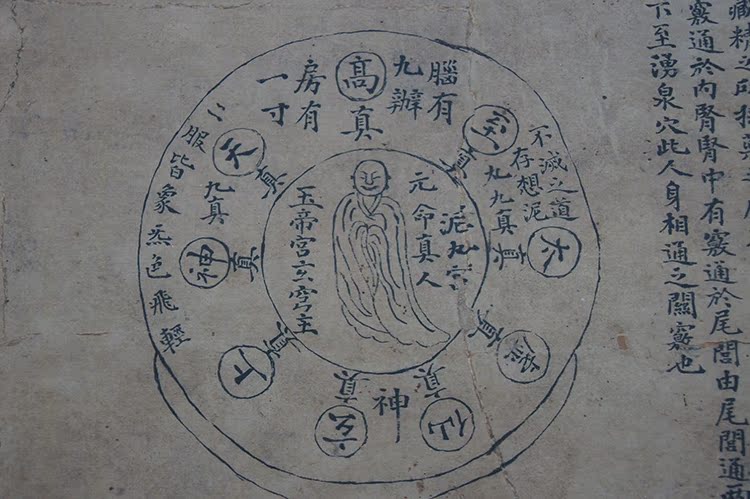 藏精之所採藥之
竅通於內腎腎中有竅通於尾閭由尾閭通兩
下至湧泉穴此人身相通之關竅也
不滅之道
存想泥
丸九真
腦有
九瓣
房有
一寸
九真
服皆象炁色飛輕
高真
真
太真
真
仙真
神
玄真
上真
神真
天真
泥丸宮
元命真人
玉帝宮玄穹主